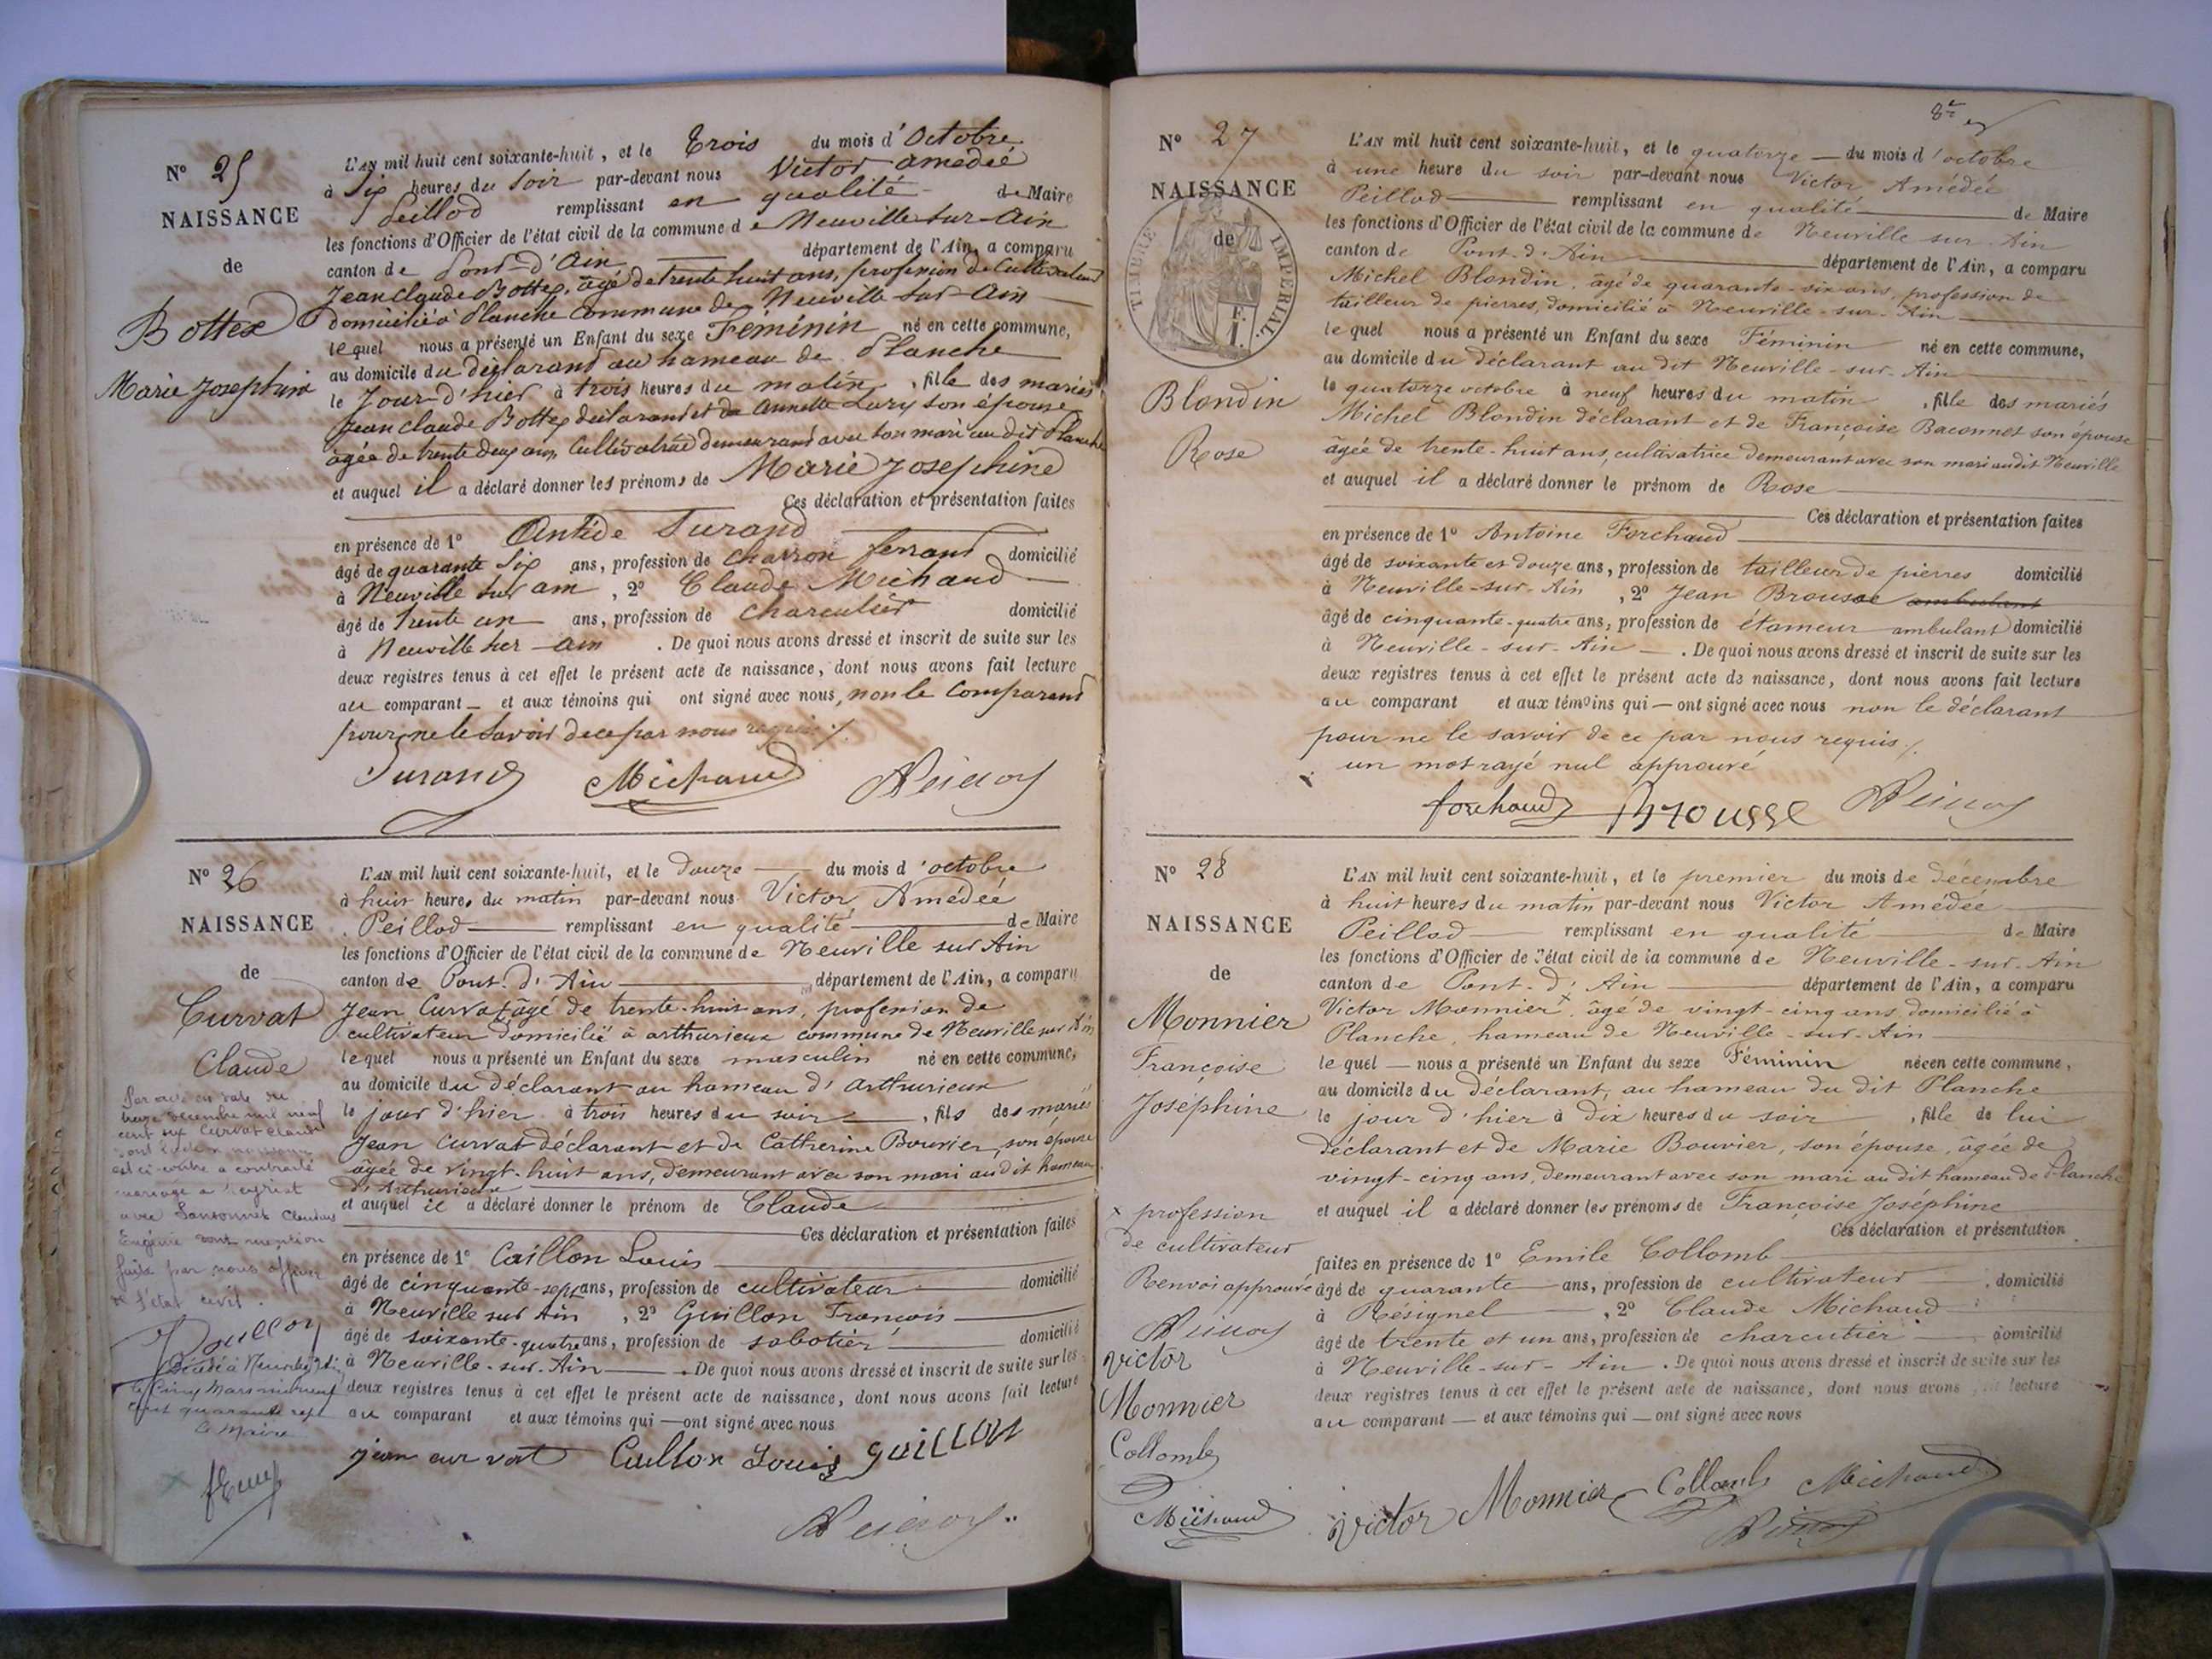 N° 25
NAISSANCE
de
Bottex
Marie Josephine
L'AN mil huit cent soixante-huit, et le Trois du mois d'Octobre
à Six heures du Soir par-devant nous Victor amédée
Peillod remplissant en qualité de Maire
les fonctions d'Officier de l'état civil de la commune de Neuville sur-Ain
canton de Pont-d'Ain département de l'Ain, a comparu
Jean Claude Bottex, âgé de trente huit ans, profession de Cultivateur
domicilié à Planche Commune de Neuville sur-Ain
lequel nous a présenté un Enfant du sexe Féminin né en cette commune,
au domicile du déclarant au hameau de Planche
le Jour d'hier à trois heures du matin, fille des mariés
Jean Claude Bottex déclarant et de Annette Lary son épouse
âgée de trente deux ans, Cultivatrice demeurant avec son mari au dit Planche
et auquel il a déclaré donner les prénoms de Marie Josephine
Ces déclaration et présentation faites
en présence de 1° Antide Durand
âgé de quarante Six ans, profession de Charron ferrant domicilié
à Neuville sur ain, 2° Claude Michaud
âgé de trente un ans, profession de charcutier domicilié
à Neuville sur-ain. De quoi nous avons dressé et inscrit de suite sur les
deux registres tenus à cet effet le présent acte de naissance, dont nous avons fait lecture
au comparant et aux témoins qui ont signé avec nous, non le Comparant
pour ne le savoir de ce par nous requis ./.
Durand Michaud Peillod
N° 26
NAISSANCE
de
Curvat
Claude
Par acte en date du
treize décembre mil neuf
cent six Curvat Claude
est ci-contre a contracté
mariage à
avec Sansonnet Claudine
Eugénie dont mention
faite par nous officier
de l'état civil.
Peillod
Décédé à Neuville s/Ain
le Cinq Mars mil neuf
cent quarante sept
Le Maire
L'AN mil huit cent soixante-huit, et le Douze du mois d'octobre
à huit heures du matin par-devant nous Victor Amédée
Peillod remplissant en qualité de Maire
les fonctions d'Officier de l'état civil de la commune de Neuville sur Ain
canton de Pont-d'Ain département de l'Ain, a comparu
Jean Curvat âgé de trente-huit ans, profession de
cultivateur domicilié à arthurieux commune de Neuville sur Ain
lequel nous a présenté un Enfant du sexe masculin né en cette commune,
au domicile du déclarant au hameau d'arthurieux
le jour d'hier à trois heures du soir, fils des mariés
Jean Curvat déclarant et de Catherine Bouvier, son épouse
âgée de vingt-huit ans, demeurant avec son mari au dit hameau
d'Arthurieux
et auquel il a déclaré donner le prénom de Claude
Ces déclaration et présentation faites
en présence de 1° Caillon Louis
âgé de cinquante-sept ans, profession de cultivateur domicilié
à Neuville sur Ain, 2° Guillon François
âgé de soixante-quatre ans, profession de sabotier domicilié
à Neuville-sur-Ain. De quoi nous avons dressé et inscrit de suite sur les
deux registres tenus à cet effet le présent acte de naissance, dont nous avons fait lecture
au comparant et aux témoins qui ont signé avec nous
jean curvat Caillon Louis guillon
Peillod
8e
N° 27
NAISSANCE
de
TIMBRE IMPERIAL
Blondin
Rose
L'AN mil huit cent soixante-huit, et le quatorze du mois d'octobre
à une heure du soir par-devant nous Victor Amédée
Peillod remplissant en qualité de Maire
les fonctions d'Officier de l'état civil de la commune de Neuville sur Ain
canton de Pont-d'Ain département de l'Ain, a comparu
Michel Blondin, âgé de quarante-six ans, profession de
tailleur de pierres, domicilié à Neuville-sur-Ain
lequel nous a présenté un Enfant du sexe Féminin né en cette commune,
au domicile du déclarant au dit Neuville-sur-Ain
le quatorze octobre à neuf heures du matin, fille des mariés
Michel Blondin déclarant et de Françoise Baconnet son épouse
âgée de trente-huit ans, cultivatrice demeurant avec son mari audit Neuville
et auquel il a déclaré donner le prénom de Rose
Ces déclaration et présentation faites
en présence de 1° Antoine Forchaud
âgé de soixante et douze ans, profession de tailleur de pierres domicilié
à Neuville-sur-Ain, 2° Jean Brousse ambulant
âgé de cinquante-quatre ans, profession de étameur ambulant domicilié
à Neuville-sur-Ain. De quoi nous avons dressé et inscrit de suite sur les
deux registres tenus à cet effet le présent acte de naissance, dont nous avons fait lecture
au comparant et aux témoins qui ont signé avec nous non le déclarant
pour ne le savoir de ce par nous requis ./.
un mot rayé nul approuvé
forchaud Brousse Peillod
N° 28
NAISSANCE
de
Monnier
Françoise
Joséphine
x profession
de cultivateur
Renvoi approuvé
Peillod
victor
Monnier
Collomb
Michaud
L'AN mil huit cent soixante-huit, et le premier du mois de décembre
à huit heures du matin par-devant nous Victor Amédée
Peillod remplissant en qualité de Maire
les fonctions d'Officier de l'état civil de la commune de Neuville-sur-Ain
canton de Pont-d'Ain département de l'Ain, a comparu
Victor Monnier x âgé de vingt-cinq ans, domicilié à
Planche, hameau de Neuville-sur-Ain
lequel nous a présenté un Enfant du sexe Féminin née en cette commune,
au domicile du déclarant, au hameau du dit Planche
le jour d'hier à Dix heures du soir, fille de lui
déclarant et de Marie Bouvier, son épouse, âgée de
vingt-cinq ans, demeurant avec son mari au dit hameau de Planche
et auquel il a déclaré donner les prénoms de Françoise Joséphine
Ces déclaration et présentation
faites en présence de 1° Emile Collomb
âgé de quarante ans, profession de cultivateur, domicilié
à Résignel, 2° Claude Michaud
âgé de trente et un ans, profession de charcutier domicilié
à Neuville-sur-Ain. De quoi nous avons dressé et inscrit de suite sur les
deux registres tenus à cet effet le présent acte de naissance, dont nous avons fait lecture
au comparant et aux témoins qui ont signé avec nous
victor Monnier Collomb Michaud
Peillod